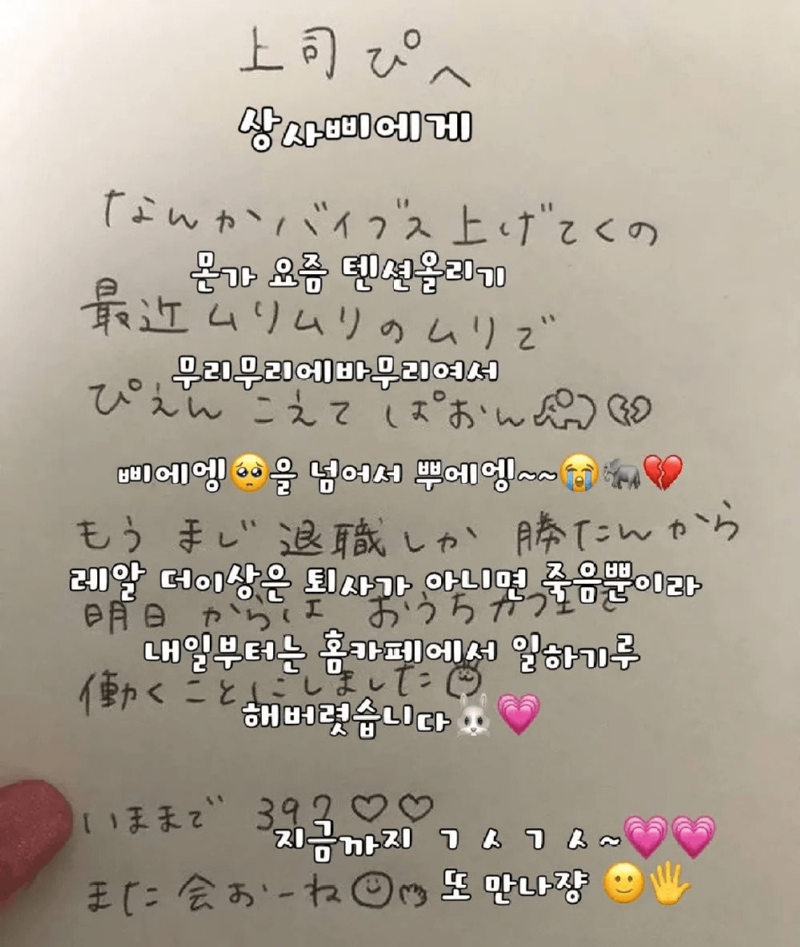 上司ぴへ
상사삐에게
なんかバイブス上げてくの
몬가 요즘 텐션올리기
最近ムリムリのムリで
무리무리에바무리여서
ぴえんこえてぱおん🐘💔
삐에엥🥺을 넘어서 뿌에엥~~😭🐘💔
もうまじ退職しか勝たんから
레알 더이상은 퇴사가 아니면 죽음뿐이라
明日からは おうちカフェで
내일부터는 홈카페에서 일하기루
働くことにしました
해버렷습니다🐰💗
いままで 39?♡♡
지금까지 ㄱㅅㄱㅅ~💗💗
また会おーね
또 만나쟝 🙂🖐